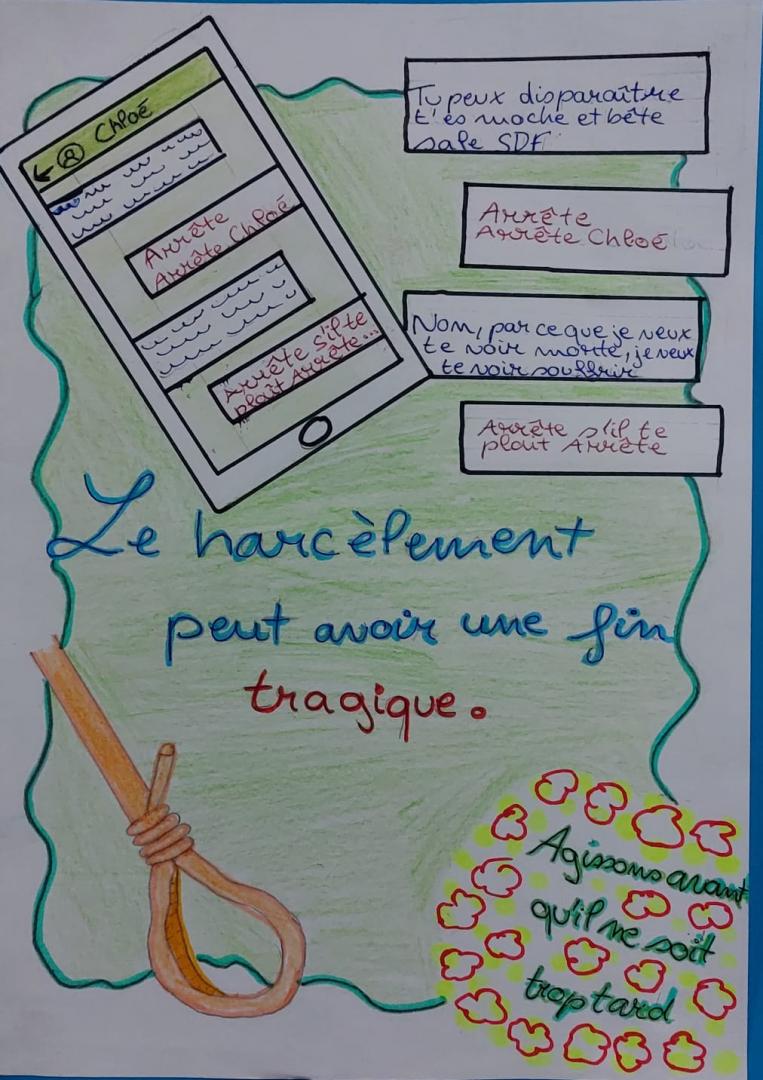 Chloé
Arrête
Arrête Chloé
Arrête S'il te
plaît Arrête...
Tu peux disparaître
t'es moche et bête
sale SDF
Arrête
Arrête Chloé
Non, parce que je veux
te voir morte, je veux
te voir souffrir
Arrête s'il te
plaît Arrête
Le harcèlement
peut avoir une fin
tragique.
Agissons avant
qu'il ne soit
trop tard